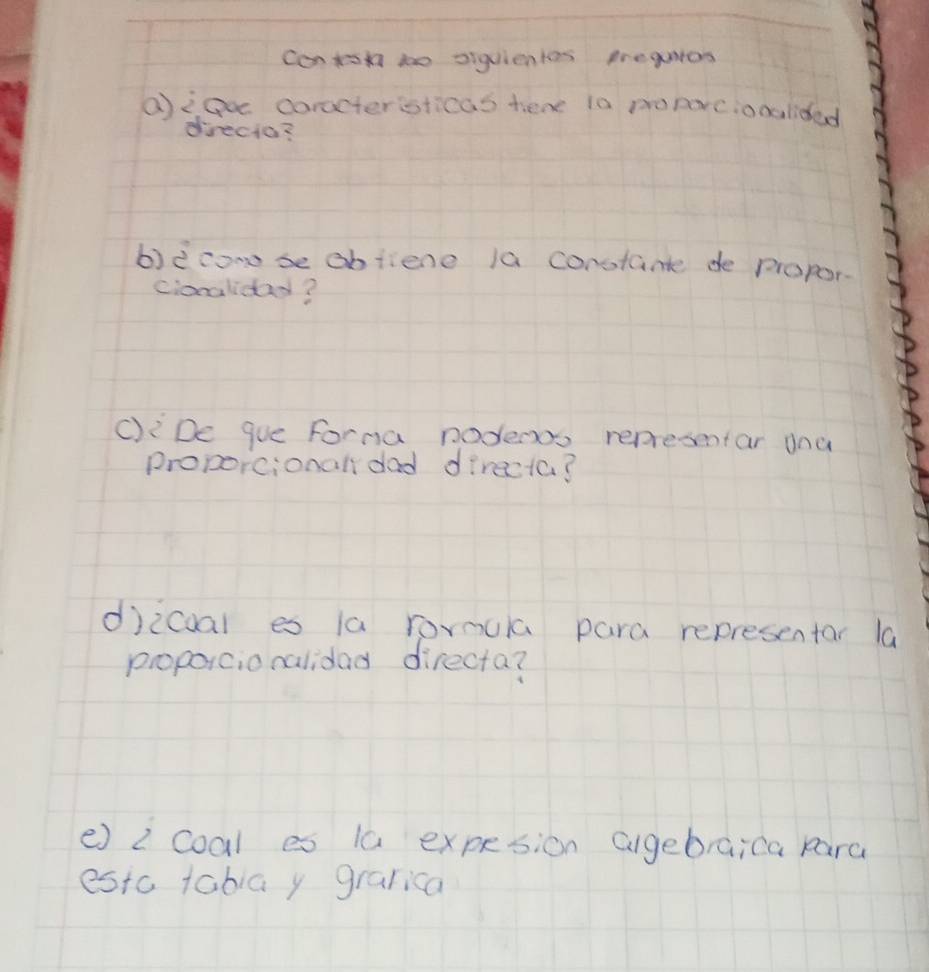 Contesta las siguientes preguntas
a) ¿Que caracteristicas tiene la proporcionalided
directa?
b) ¿como se obtiene la constante de propor-
cionalidad?
c) ¿De que Forma podemos representar una
proporcionalidad directa?
d) ¿cual es la formula para representar la
proporcionalidad directa?
e) ¿cual es la expesion algebraica para
esta tabla y grafica